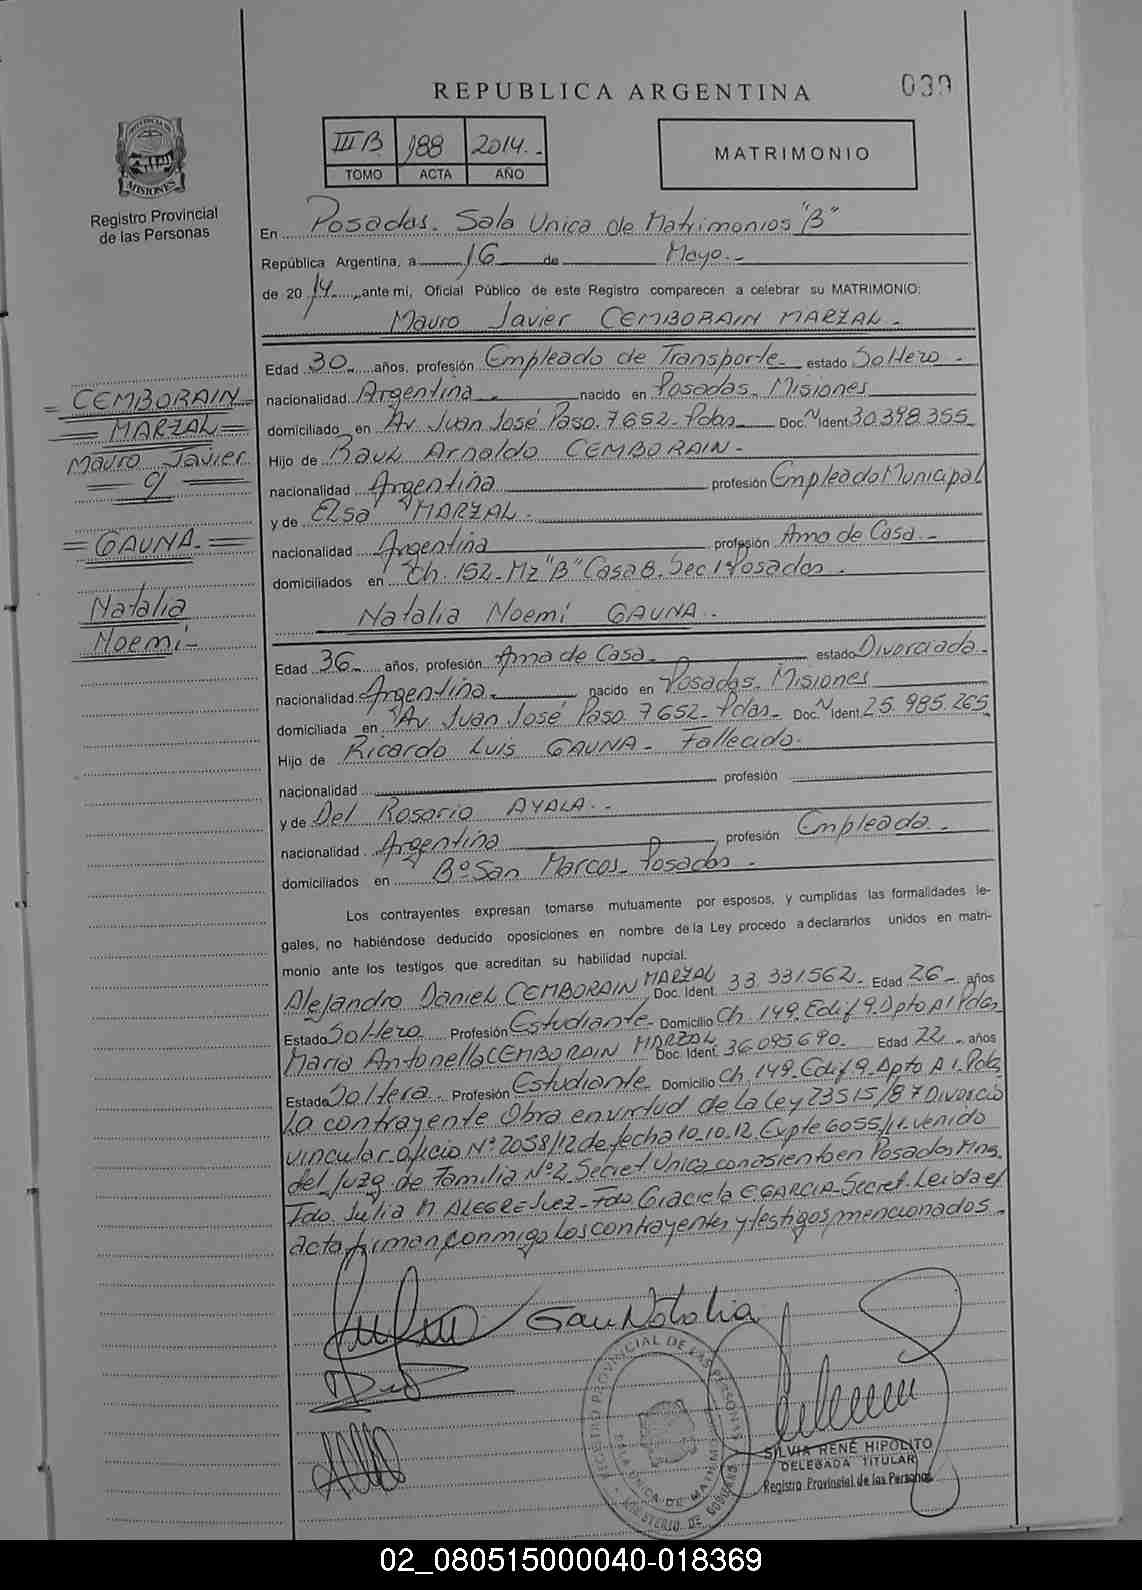 REPUBLICA ARGENTINA
039
PROVINCIA DE
MISIONES
Registro Provincial
de las Personas
III B 188 2014.-
TOMO ACTA AÑO
MATRIMONIO
En Posadas. Sala Unica de Matrimonios "B"
República Argentina, a 16 de Mayo.-
de 2014, ante mí, Oficial Público de este Registro comparecen a celebrar su MATRIMONIO:
Mauro Javier CEMBORAIN MARZAL.
Edad 30 años, profesión Empleado de Transporte estado Soltero.
nacionalidad Argentina. nacido en Posadas. Misiones
domiciliado en Av. Juan José Paso. 7652- Pdas Doc. N Ident 30.398.355
Hijo de Raul Arnaldo CEMBORAIN.
nacionalidad Argentina profesión Empleado Municipal
y de Elsa MARZAL.
nacionalidad Argentina profesión Ama de Casa.-
domiciliados en Ch. 152- Mz "B" Casa 8. Sec 1 Posadas.
= CEMBORAIN
= MARZAL =
Mauro Javier
= c/ =
= GAUNA.- =
Natalia
Noemí-
Natalia Noemí GAUNA.
Edad 36 años, profesión Ama de Casa. estado Divorciada.
nacionalidad Argentina. nacido en Posadas. Misiones
domiciliada en Av. Juan José Paso. 7652- Pdas- Doc. N Ident. 25.985.265
Hijo de Ricardo Luis GAUNA- Fallecido.
nacionalidad profesión
y de Del Rosario AYALA.-
nacionalidad Argentina profesión Empleada.
domiciliados en Bº San Marcos- Posadas.
Los contrayentes expresan tomarse mutuamente por esposos, y cumplidas las formalidades le-
gales, no habiéndose deducido oposiciones en nombre de la Ley procedo a declararlos unidos en matri-
monio ante los testigos que acreditan su habilidad nupcial.
Alejandro Daniel CEMBORAIN MARZAL Doc. Ident. 33.331.562- Edad 26- años
Estado Soltero Profesión Estudiante- Domicilio Ch. 149. Edif 9. Dpto A1 Pdas
María Antonella CEMBORAIN MARZAL Doc. Ident. 36.095690. Edad 22 años
Estado Soltera. Profesión Estudiante Domicilio Ch. 149- Edif 9- Dpto A 1. Pdas
La contrayente Obra en virtud de la Ley 23515/87 Divorcio
vincular- oficio Nº 2058/12 de fecha 10.10.12. Expte 6055/11. venido
del Juzg. de Familia Nº 2 Secret Unica con asiento en Posadas Mnes.
Fdo. Julia M ALEGRE Juez- Fdo. Graciela E. GARCIA- Secret. Leida el
acta firman conmigo los contrayentes y testigos mencionados.
Gau Natalia
REGISTRO PROVINCIAL DE LAS PERSONAS
SALA UNICA DE MATRIMONIOS
MINISTERIO DE GOBIERNO
SILVIA RENÉ HIPOLITO
DELEGADA TITULAR
Registro Provincial de las Personas
02_080515000040-018369